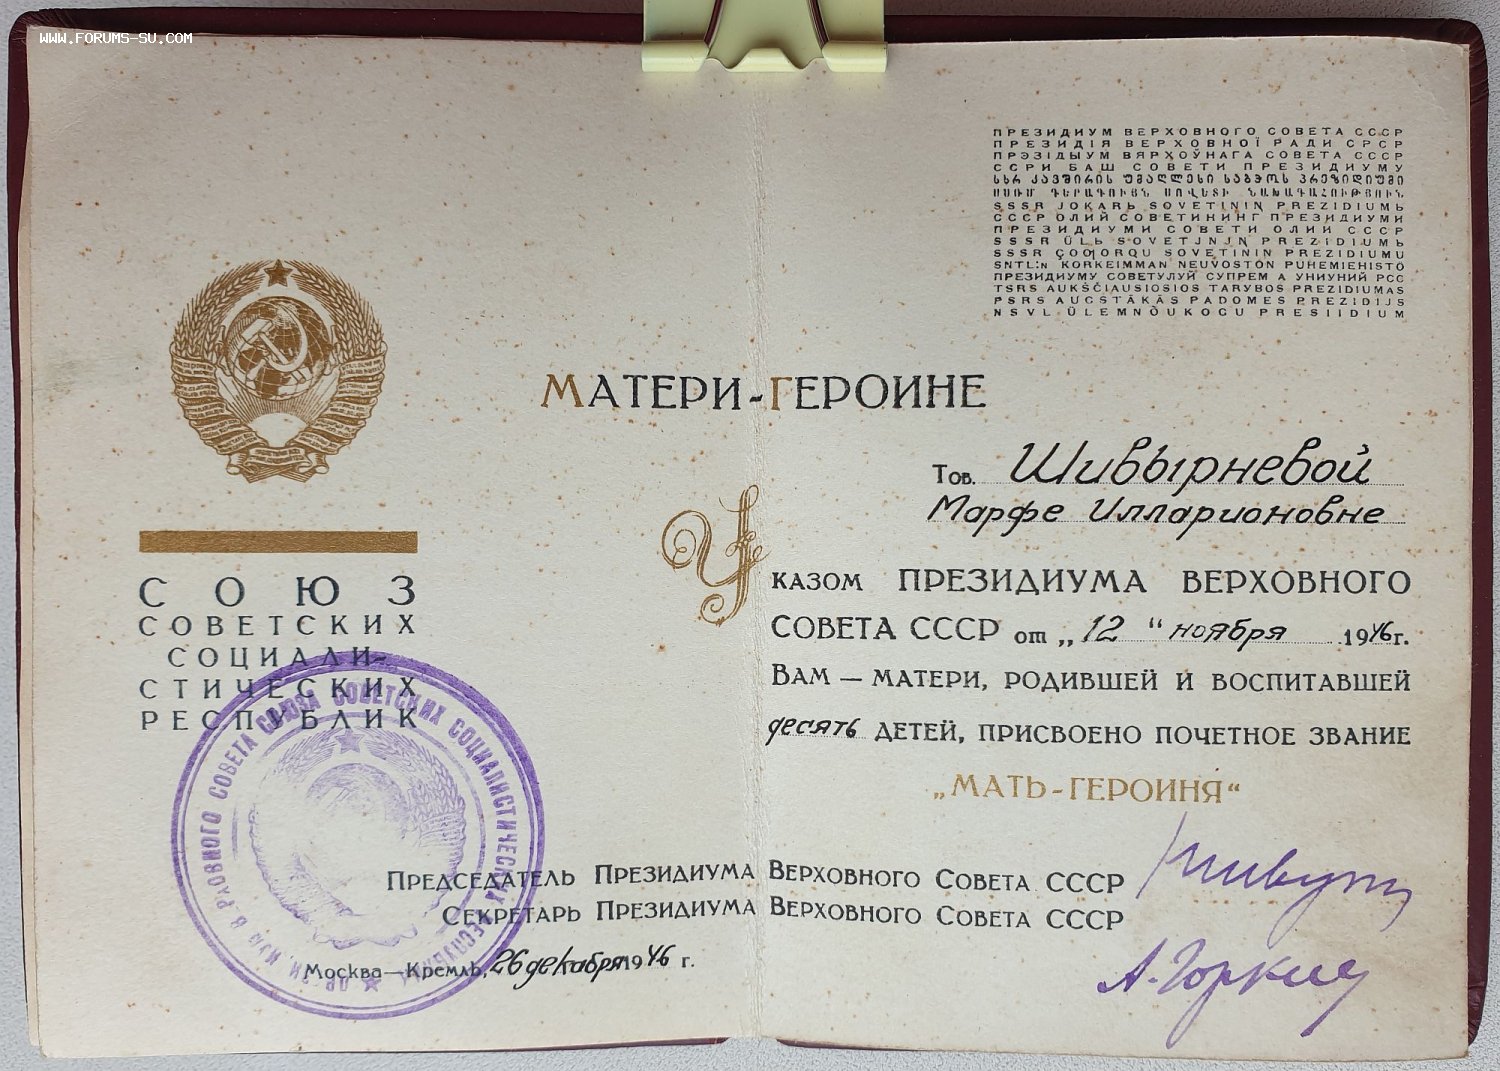 WWW.FORUMS-SU.COM
ПРЕЗИДИУМ ВЕРХОВНОГО СОВЕТА СССР
ПРЕЗИДІЯ ВЕРХОВНОЇ РАДИ СРСР
ПРЭЗІДЫУМ ВЯРХОЎНАГА СОВЕТА СССР
ССРИ БАШ СОВЕТИ ПРЕЗИДИУМУ
ՍՍՌՄ ԳԵՐԱԳՈՒՅՆ ՍՈՎԵՏԻ ՆԱԽԱԳԱՀՈՒԹՅՈՒՆ
SSSR JOKARЬ SOVETININ PREZIDIUMЬ
СССР ОЛИЙ СОВЕТИНИНГ ПРЕЗИДИУМИ
ПРЕЗИДИУМИ СОВЕТИ ОЛИИ СССР
SSSR PREZIDIUMЬ
SSSR SOVETININ PREZIDIUMU
SNTL:n KORKEIMMAN NEUVOSTON PUHEMIEHISTÖ
ПРЕЗИДИУМУ СОВЕТУЛУЙ СУПРЕМ А УНИУНИЙ РСС
TSRS AUKŠČIAUSIOSIOS TARYBOS PREZIDIUMAS
PSRS AUGSTĀKĀS PADOMES PREZIDIJS
NSVL ÜLEMNÕUKOGU PRESIIDIUM
МАТЕРИ-ГЕРОИНЕ
Тов. Шивырневой
Марфе Илларионовне
УКАЗОМ ПРЕЗИДИУМА ВЕРХОВНОГО
СОВЕТА СССР от „12“ ноября 1946 г.
ВАМ — МАТЕРИ, РОДИВШЕЙ И ВОСПИТАВШЕЙ
десять ДЕТЕЙ, ПРИСВОЕНО ПОЧЕТНОЕ ЗВАНИЕ
„МАТЬ-ГЕРОИНЯ“
СОЮЗ
СОВЕТСКИХ
СОЦИАЛИ-
СТИЧЕСКИХ
РЕСПУБЛИК
ВЕРХОВНОГО СОВЕТА СОЮЗА СОВЕТСКИХ СОЦИАЛИСТИЧЕСКИХ РЕСПУБЛИК
ПРЕДСЕДАТЕЛЬ ПРЕЗИДИУМА ВЕРХОВНОГО СОВЕТА СССР
СЕКРЕТАРЬ ПРЕЗИДИУМА ВЕРХОВНОГО СОВЕТА СССР
А. Горкин
Москва—Кремль, 26 декабря 1946 г.